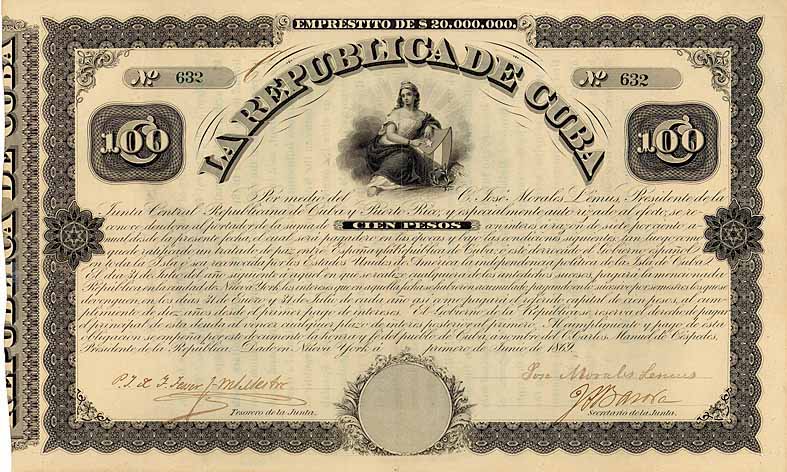 EMPRESTITO DE $ 20.000.000.
LA REPUBLICA DE CUBA
No 632
No 632
100
100
REPUBLICA DE CUBA
Por medio del C. José Morales Lémus, Presidente de la
Junta Central Republicana de Cuba y Puerto Rico, y especialmente autorizado al efecto, se reco-
noce deudora al portador de la suma de CIEN PESOS con interes a razon de siete por ciento a-
nual desde la presente fecha, el cual será pagadero en las épocas y bajo las condiciones siguientes. Tan luego como
quede ratificado un tratado de paz entre España y la República de Cuba, ó esté derrocado el Gobierno español
en la Isla, ó sea reconocida por los Estados Unidos de América la independencia política de la Isla de Cuba
El dia 31 de Julio del año subsecuente a aquel en que se realize cualquiera de los antedichos sucesos, pagará la mencionada
República en la ciudad de Nueva York los intereses que en aquella fecha se hubieren acumulado, pagando en lo sucesivo por semestres los que se
devenguen en los dias 31 de Enero y 31 de Julio de cada año así como pagará el citado capital de cien pesos al cum-
plimento de diez años desde el primer pago de interes. El Gobierno de la República se reserva el derecho de pagar
el principal de esta deuda al vencer cualquier plazo de interes posterior al primero. Al cumplimento y pago de esta
obligacion se empeña por este documento la honra y fé del pueblo de Cuba, a nombre del C. Carlos Manuel de Céspedes,
Presidente de la República. Dado en Nueva York á primero de Junio de 1869.
José Morales Lemus
Tesorero de la Junta.
Secretario de la Junta.